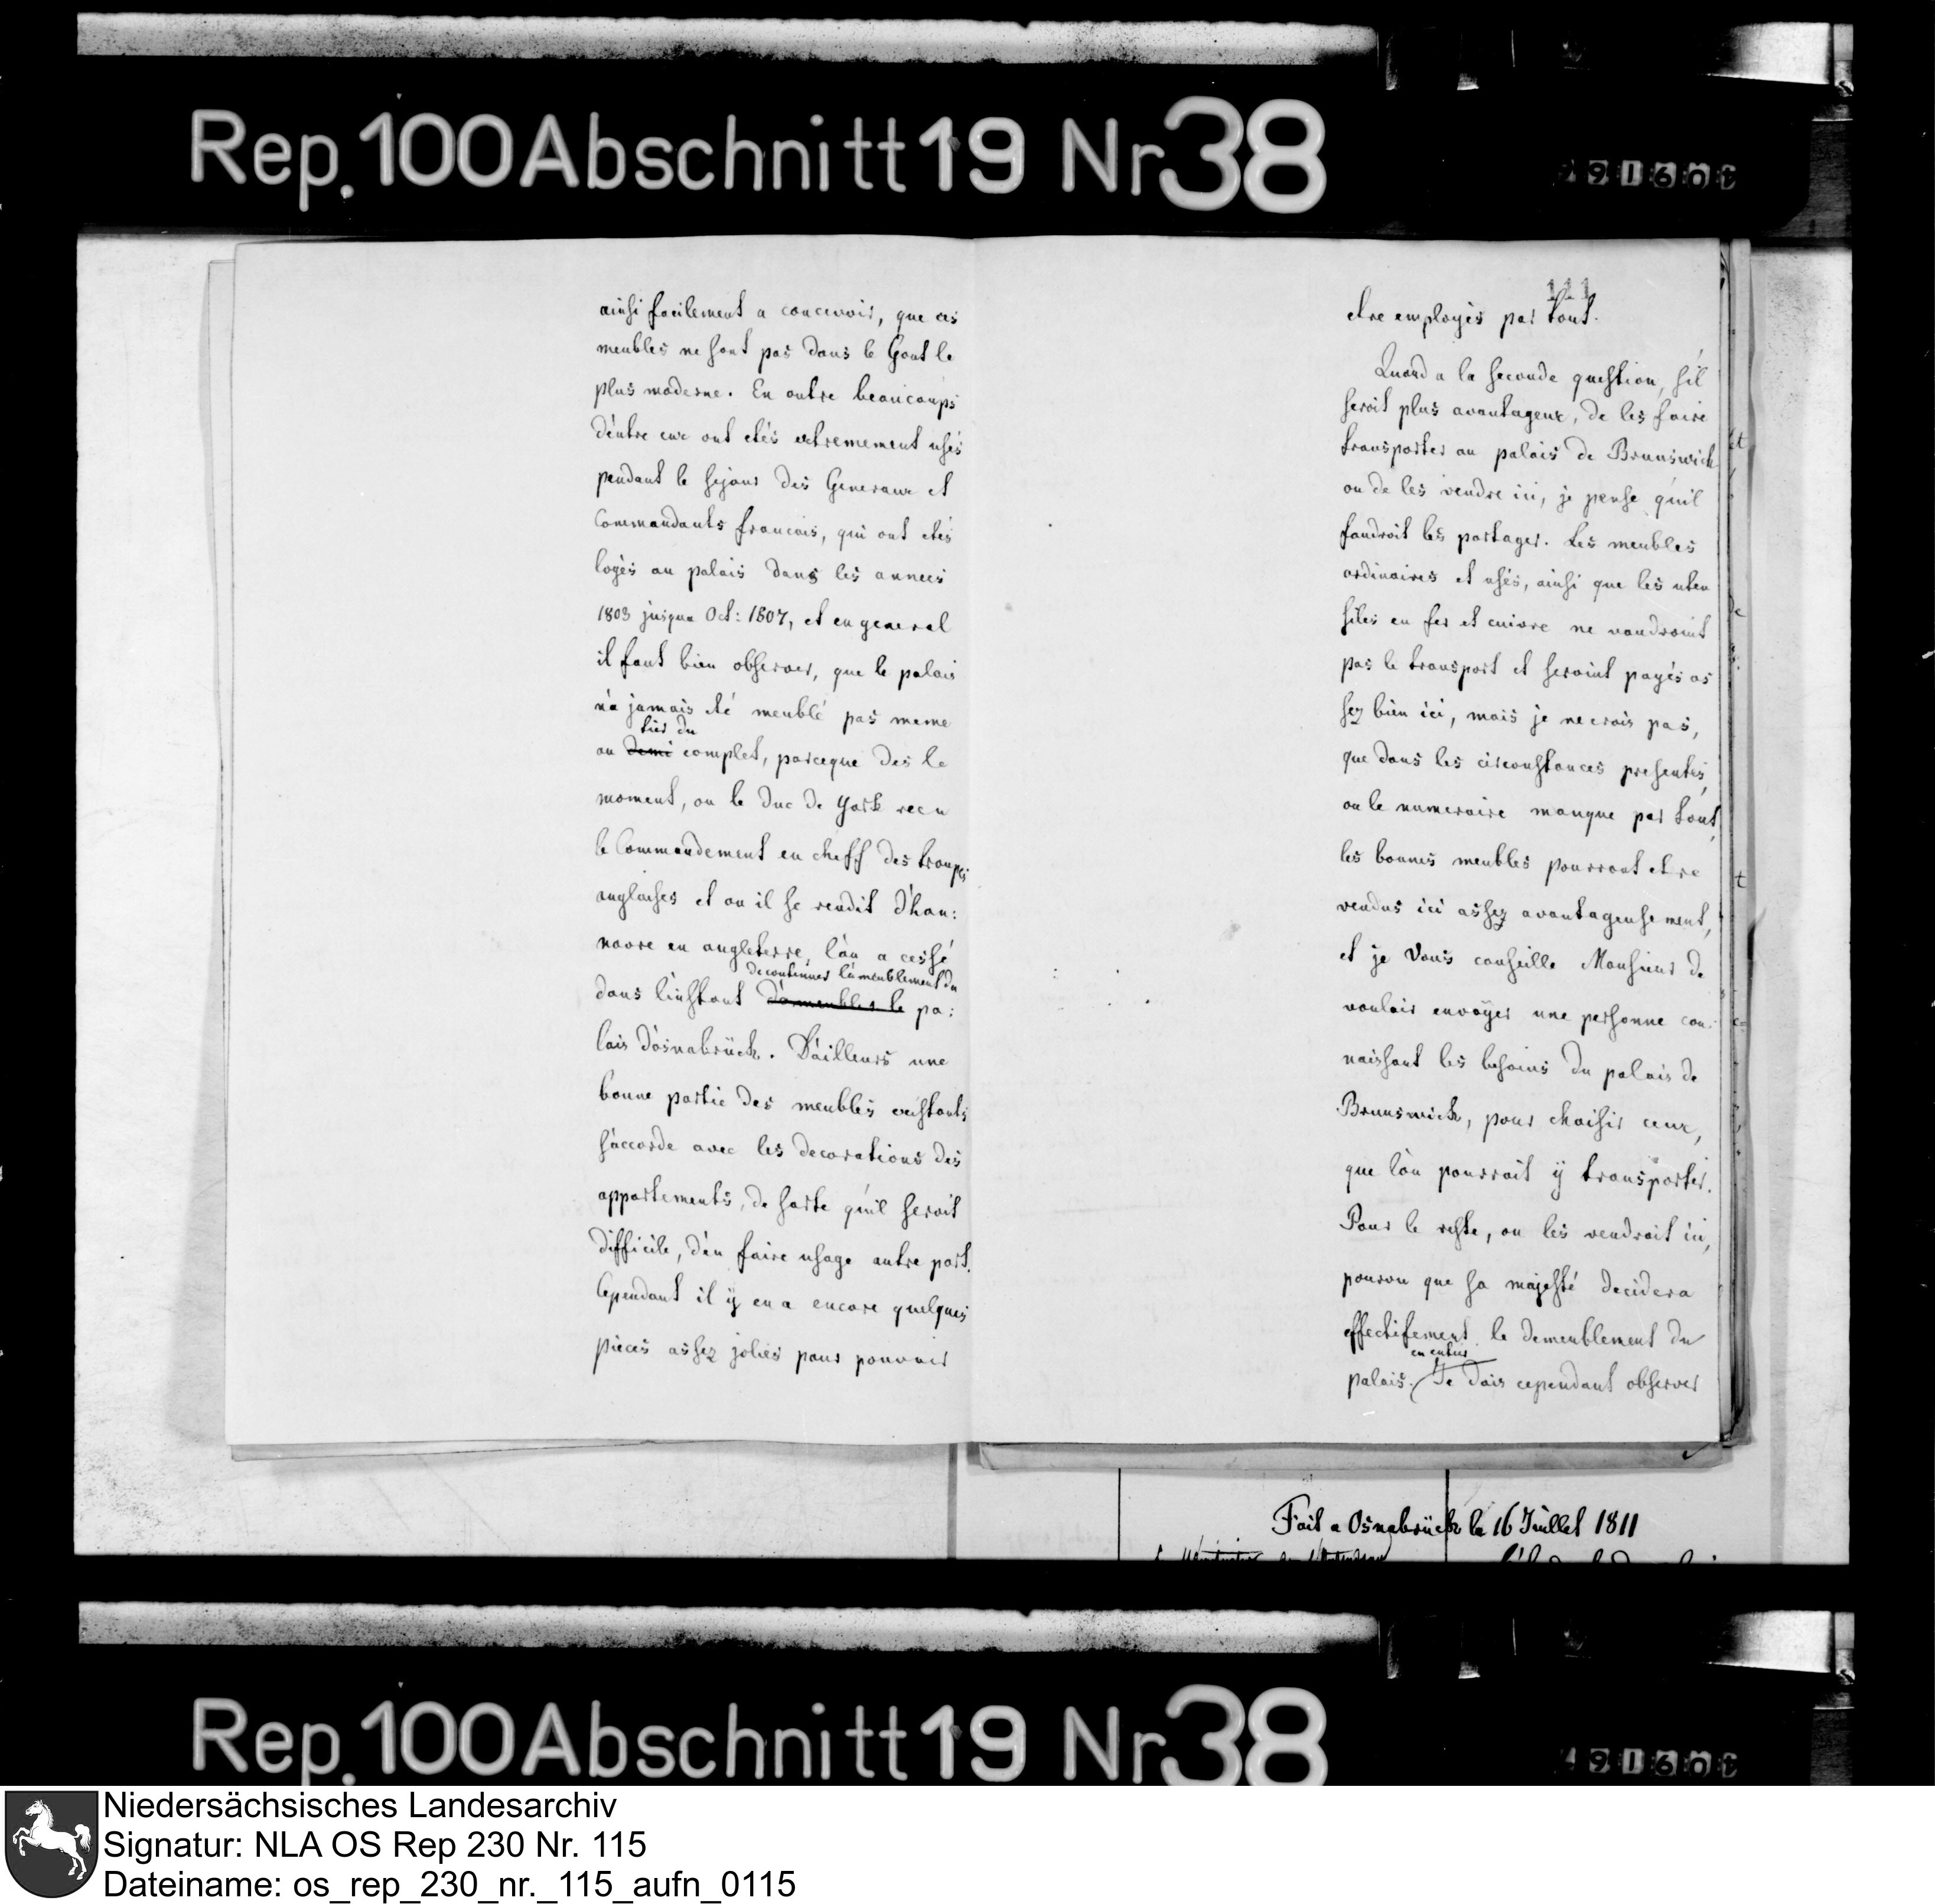 Rep. 100 Abschnitt 19 Nr 38
ainsi facilement a concevoir, que ces
meubles ne sont pas dans le Gout le
plus moderne. En outre beaucoups
d'entre eux ont etés extremement usés
pendant le sejour des Generaux et
Commandants francois, qui ont etés
logés au palais dans les annees
1803 jusqua Oct: 1807, et en general
il faut bien observer, que le palais
n'a jamais eté meublé pas meme
tier du
au demi complet, parceque des le
moment, ou le Duc de York recu
le Commandement en cheff des troupes
anglaises et ou il se rendit d'han:
novre en angleterre, l'on a cessé
de continuer l'ameublement du
dans l'instant d'ameubler le pa:
lais d'osnabrück. D'ailleurs une
bonne partie des meubles existants
s'accorde avec les decorations des
appartements, de sorte qu'il seroit
difficile, d'en faire usage autre part.
Cependant il ÿ en a encore quelques
pieces assez jolies pour pouvoir
111
etre employés par tout.
Quand a la seconde question, s'il
seroit plus avantageux, de les faire
transporter au palais de Brunswick
ou de les vendre ici, je pense qu'il
faudroit les partager. Les meubles
ordinaires et usés, ainsi que les uten
siles en fer et cuivre ne vaudroint
pas le transport et seroint payés as
sez bien ici, mais je ne crois pas,
que dans les circonstances presentes,
ou le numeraire manque par tout,
les bonnes meubles pourront etre
vendus ici assez avantageusement,
et je Vous conseille Monsieur de
vouloir envoÿer une personne con:
naissant les besoins du palais de
Brunswick, pour choisir ceux,
que l'on pourroit ÿ transporter.
Pour le reste, on les vendroit ici,
pourvu que sa majesté decidera
effectifement le demeublement du
en entier
palais. Je dois cependant observer
Fait a Osnabrück le 16 Juillet 1811
Rep. 100 Abschnitt 19 Nr 38
Niedersächsisches Landesarchiv
Signatur: NLA OS Rep 230 Nr. 115
Dateiname: os_rep_230_nr._115_aufn_0115